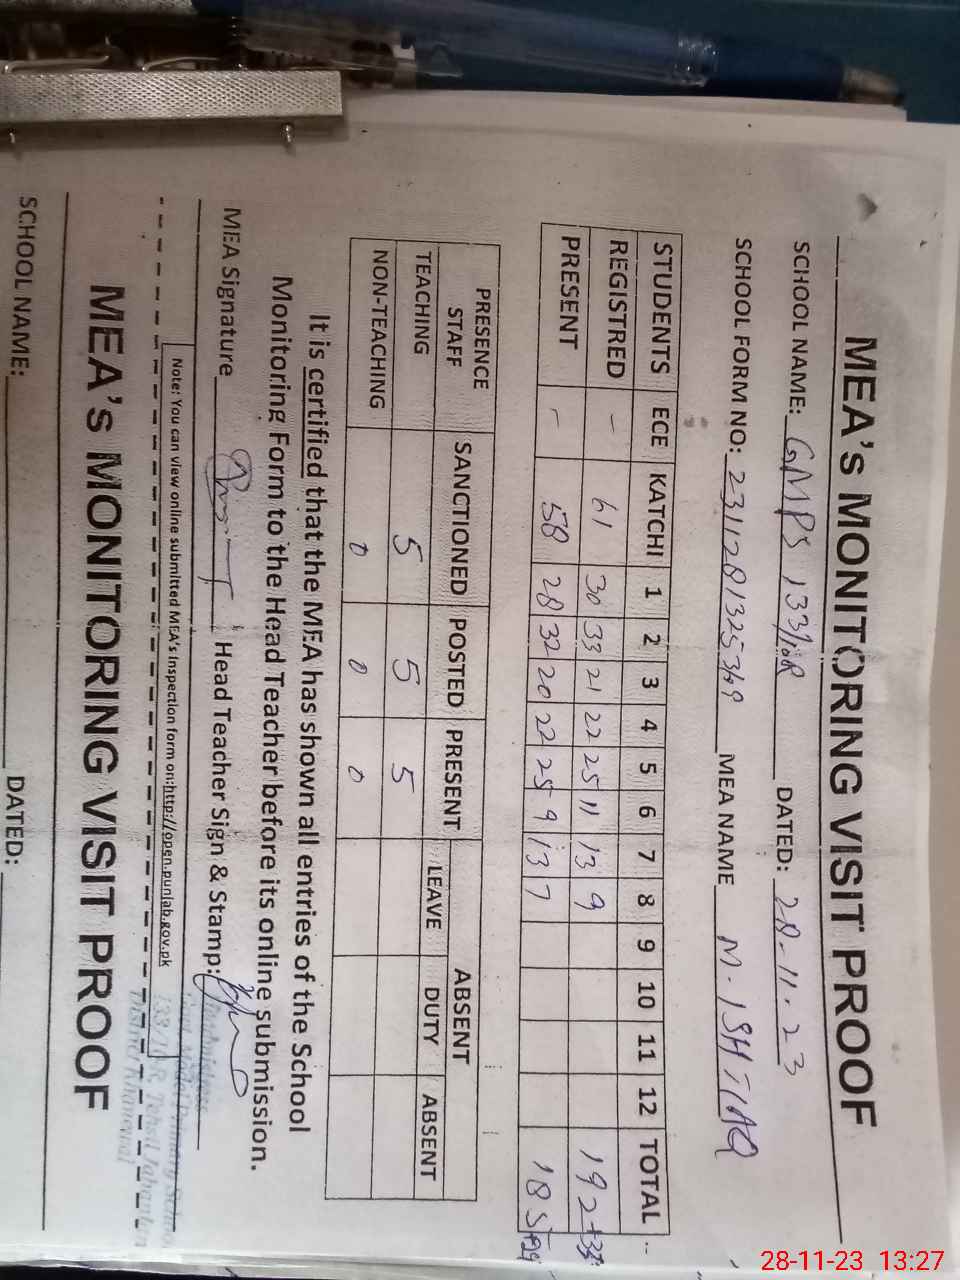 MEA's MONITORING VISIT PROOF
SCHOOL NAME: GMPS 133/10R DATED: 28-11-23
SCHOOL FORM NO: MEA NAME M-ISHTIAQ
STUDENTS ECE KATCHI 1 2 3 4 5 6 7 8 9 10 11 12 TOTAL
REGISTRED - 61 30 33 21 22 25 11 13 9 192+33
PRESENT - 58 28 32 20 22 25 9 13 7 185+29
PRESENCE STAFF SANCTIONED POSTED PRESENT ABSENT
LEAVE DUTY ABSENT
TEACHING 5 5 5
NON-TEACHING 0 0 0
It is certified that the MEA has shown all entries of the School
Monitoring Form to the Head Teacher before its online submission.
MEA Signature Head Teacher Sign & Stamp:
Headmistress
Govt. Model Primary School
133/10R, Tehsil Jahanian
District Khanewal
Note: You can view online submitted MEA's Inspection form on:http://open.punjab.gov.pk
MEA's MONITORING VISIT PROOF
SCHOOL NAME: DATED:
28-11-23 13:27